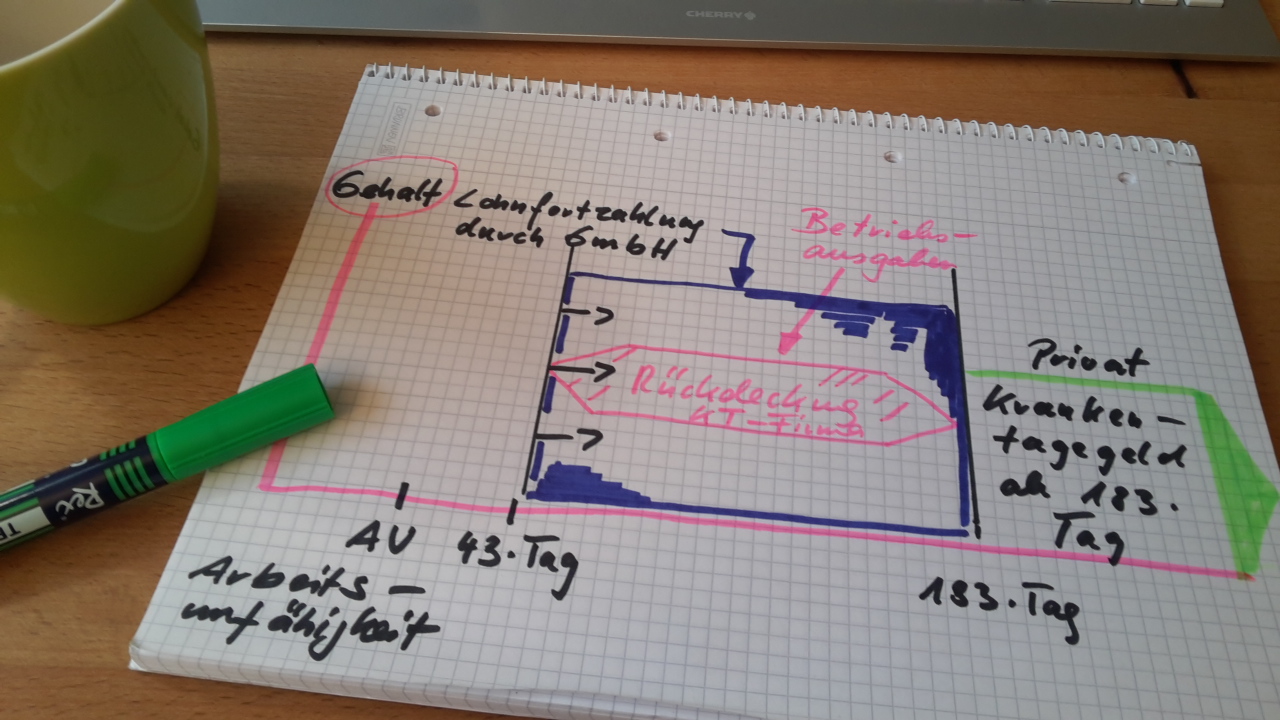 CHERRY
BRUNNEN
Gehalt
Lohnfortzahlung
durch GmbH
Betriebs-
ausgaben
Rückdeckung
KT-Firma
Privat
Kranken-
tagegeld
ab 183.
Tag
AU
43. Tag
183. Tag
Arbeits-
unfähigkeit